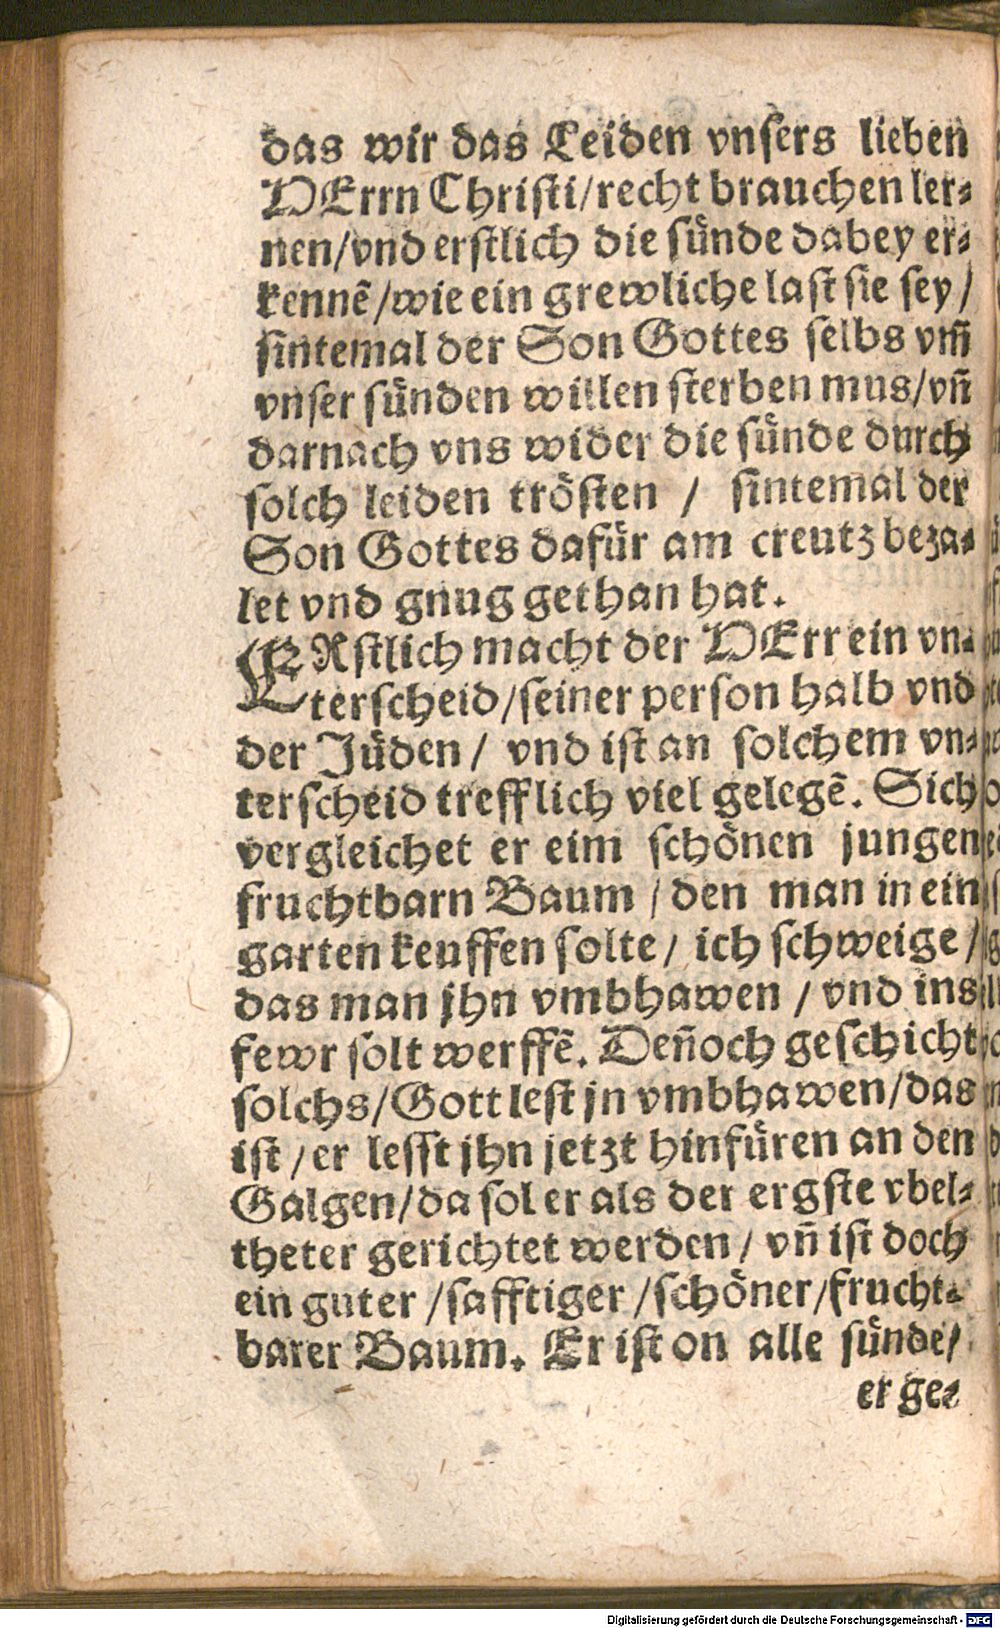 das wir das Leiden vnsers lieben
HErrn Christi/recht brauchen ler⸗
nen/vnd erstlich die sünde dabey er⸗
kennẽ/wie ein grewliche last sie sey/
sintemal der Son Gottes selbs vm̃
vnser sünden willen sterben mus/vñ
darnach vns wider die sünde durch
solch leiden trösten / sintemal der
Son Gottes dafür am creutz beza⸗
let vnd gnug gethan hat.
ERstlich macht der HErr ein vn⸗
terscheid/seiner person halb vnd
der Jüden/ vnd ist an solchem vn⸗
terscheid trefflich viel gelegẽ. Sich
vergleichet er eim schönen jungen
fruchtbarn Baum / den man in ein
garten keuffen solte/ ich schweige/
das man jhn vmbhawen / vnd ins
fewr solt werffẽ. Deñoch geschicht
solchs/Gott lest jn vmbhawen/das
ist/er lesst jhn jetzt hinfüren an den
Galgen/da sol er als der ergste vbel⸗
theter gerichtet werden/ vñ ist doch
ein guter /safftiger /schöner/frucht⸗
barer Baum. Er ist on alle sünde/
er ge⸗
Digitalisierung gefördert durch die Deutsche Forschungsgemeinschaft - DFG